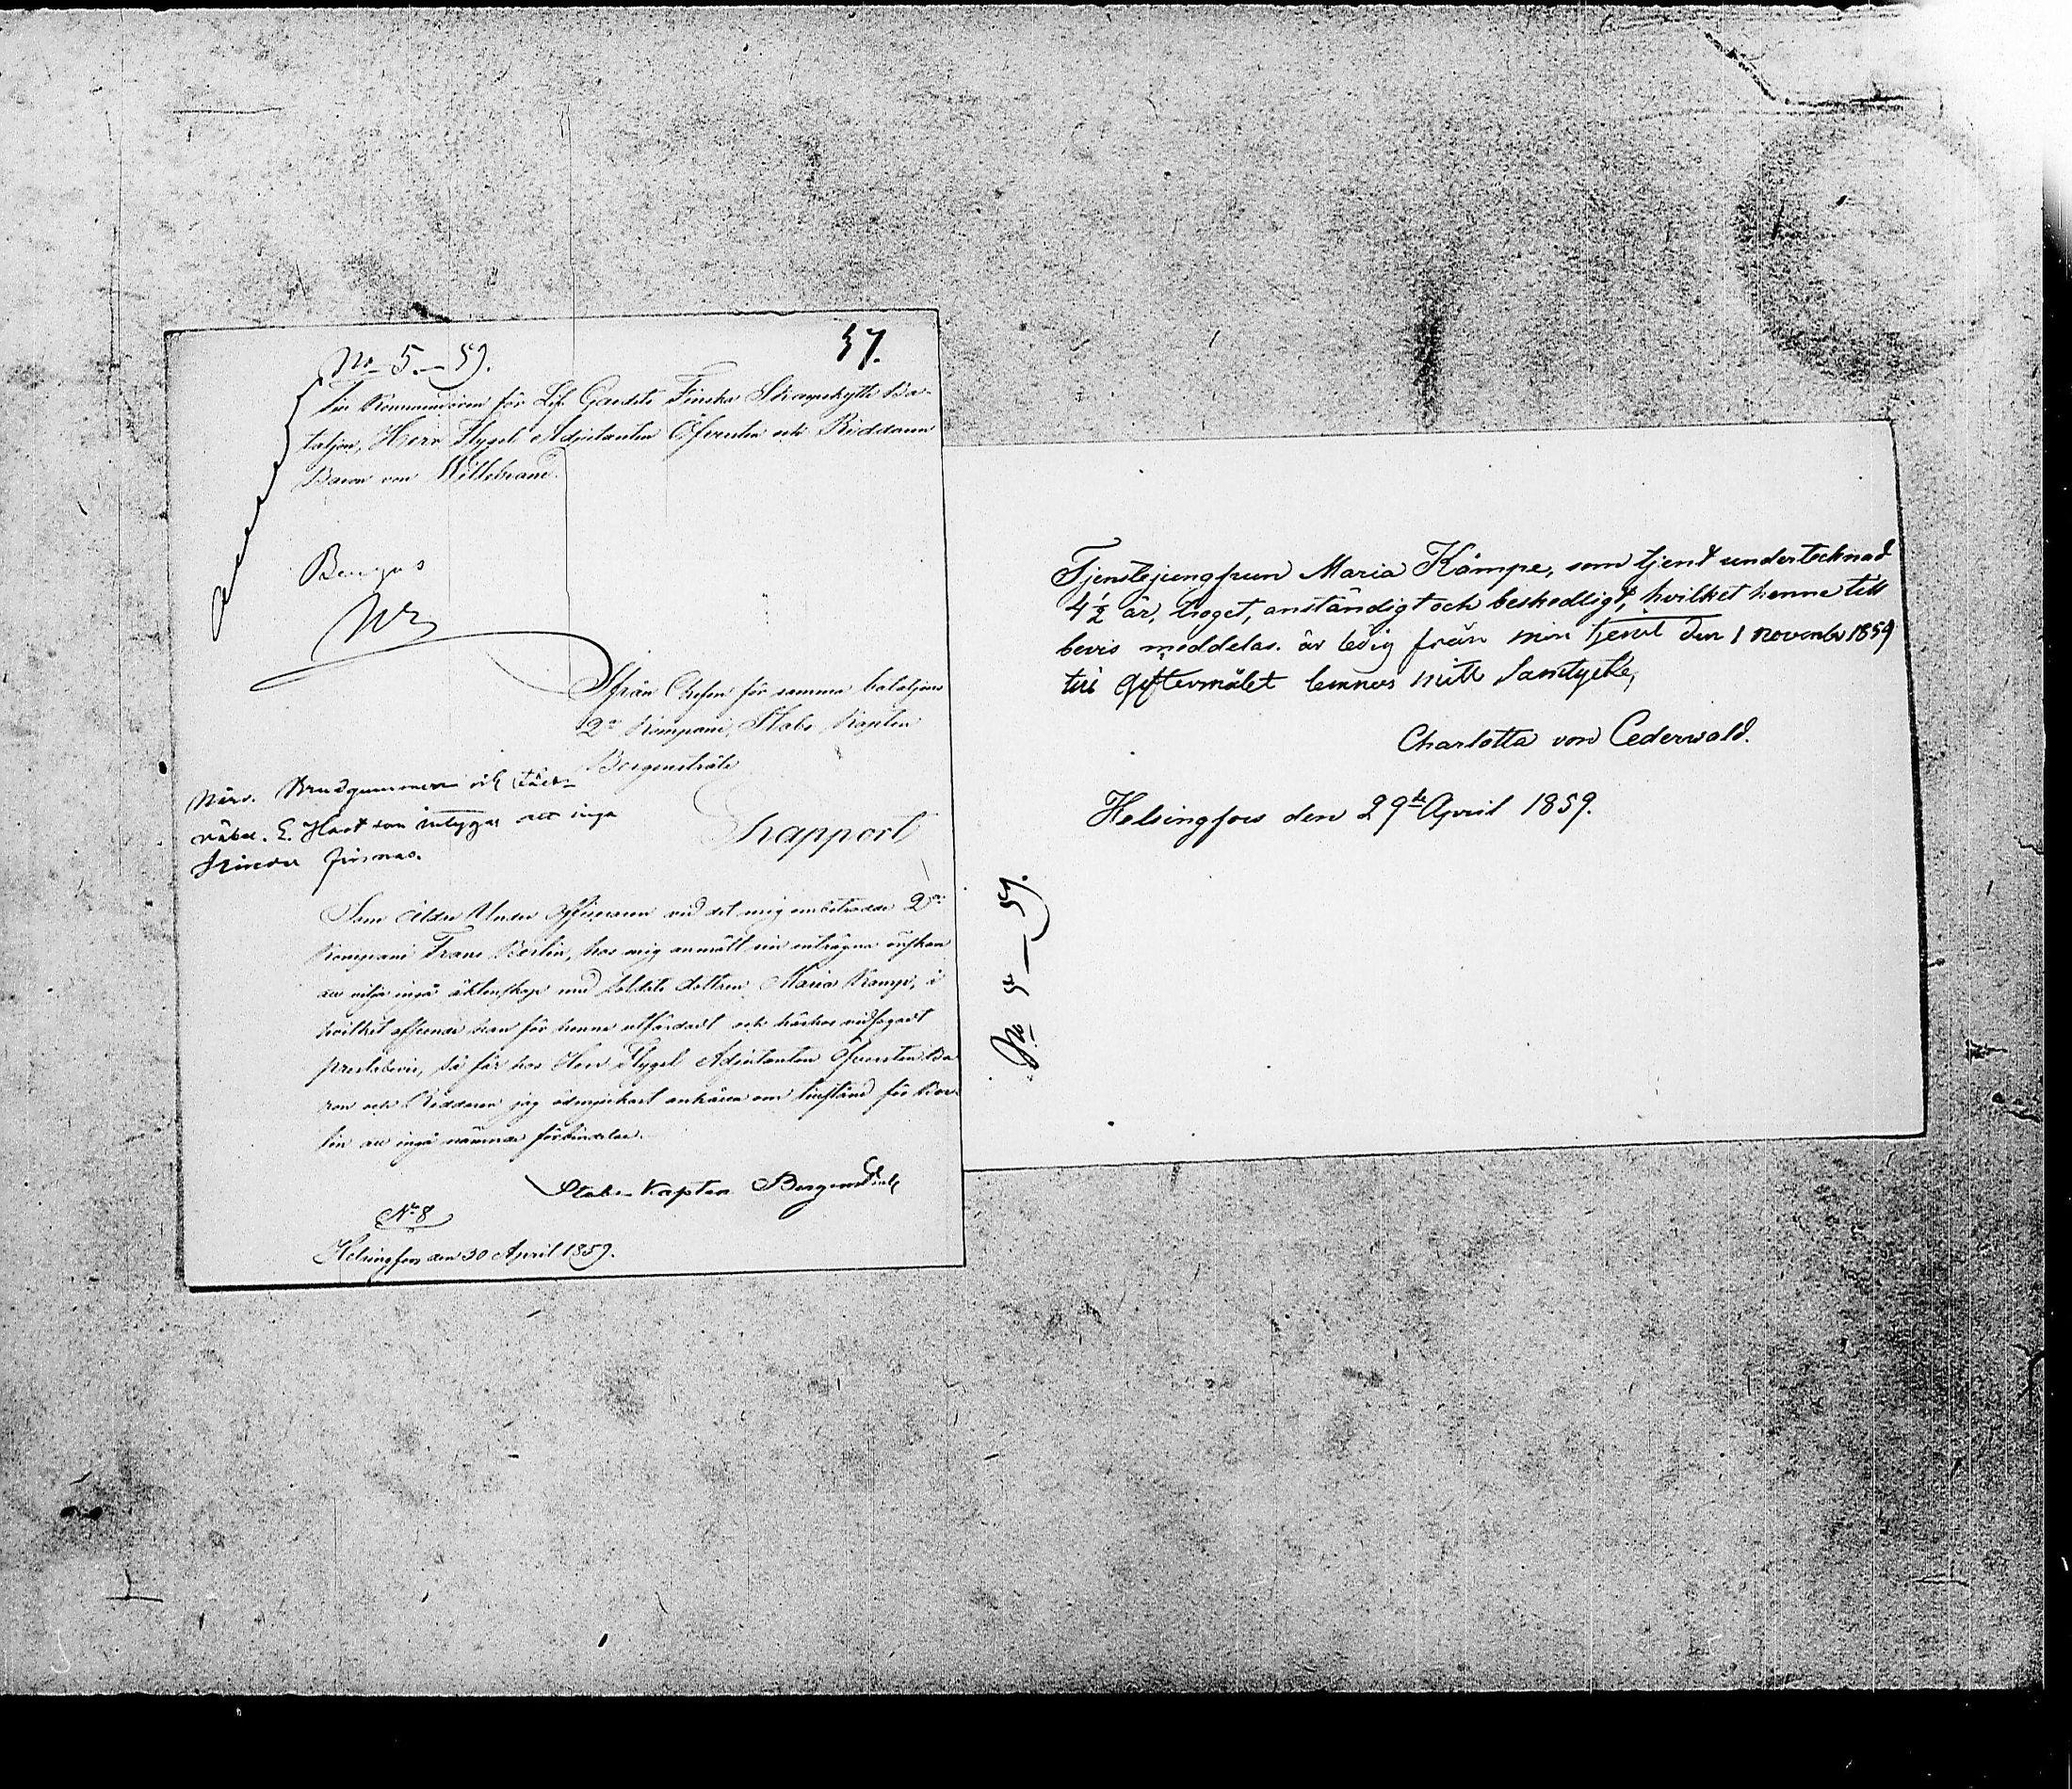 No 5.–59.
37.
Till Kommendören för Lif Gardets Finska Skarpskytte Ba-
taljon, Herr Flygel Adjutanten Öfversten och Riddaren
Baron von Willebrand.
Ifrån Chefen för samma bataljons
2a Kompani, Stabs Kapten
Bergenstråle
Närv. Brudgummen och
E. som intygar att inga
hinder finnas.
Rapport
Som äldre Under Officeraren vid det mig anbetrodda 2a
Kompani Frans Berlin, hos mig anmält sin enträgna önskan
att vilja ingå äktenskap med Soldats dottren Maria Kamp, i
hvilket afseende han för henne utfärdadt och härhos vidfogadt
prestabevis, så får hos Herr Flygel Adjutanten Öfversten Ba-
ron och Riddaren jag ödmjukast anhålla om tillstånd för Ber-
lin att ingå nämnde förbindelse.
Stabs-Kapten Bergenstråle
No 8
Helsingfors den 30 April 1859.
Tjenstejungfrun Maria Kämpe, som tjent undertecknad
4 1/2 år, troget, anständigt och beskedligt, hvilket henne till
bevis meddelas. är ledig från min tjenst den 1 november 1859
till giftermålet lemnas mitt Samtycke,
Charlotta von Cederwald.
Helsingfors den 29de April 1859.
No 5–59.